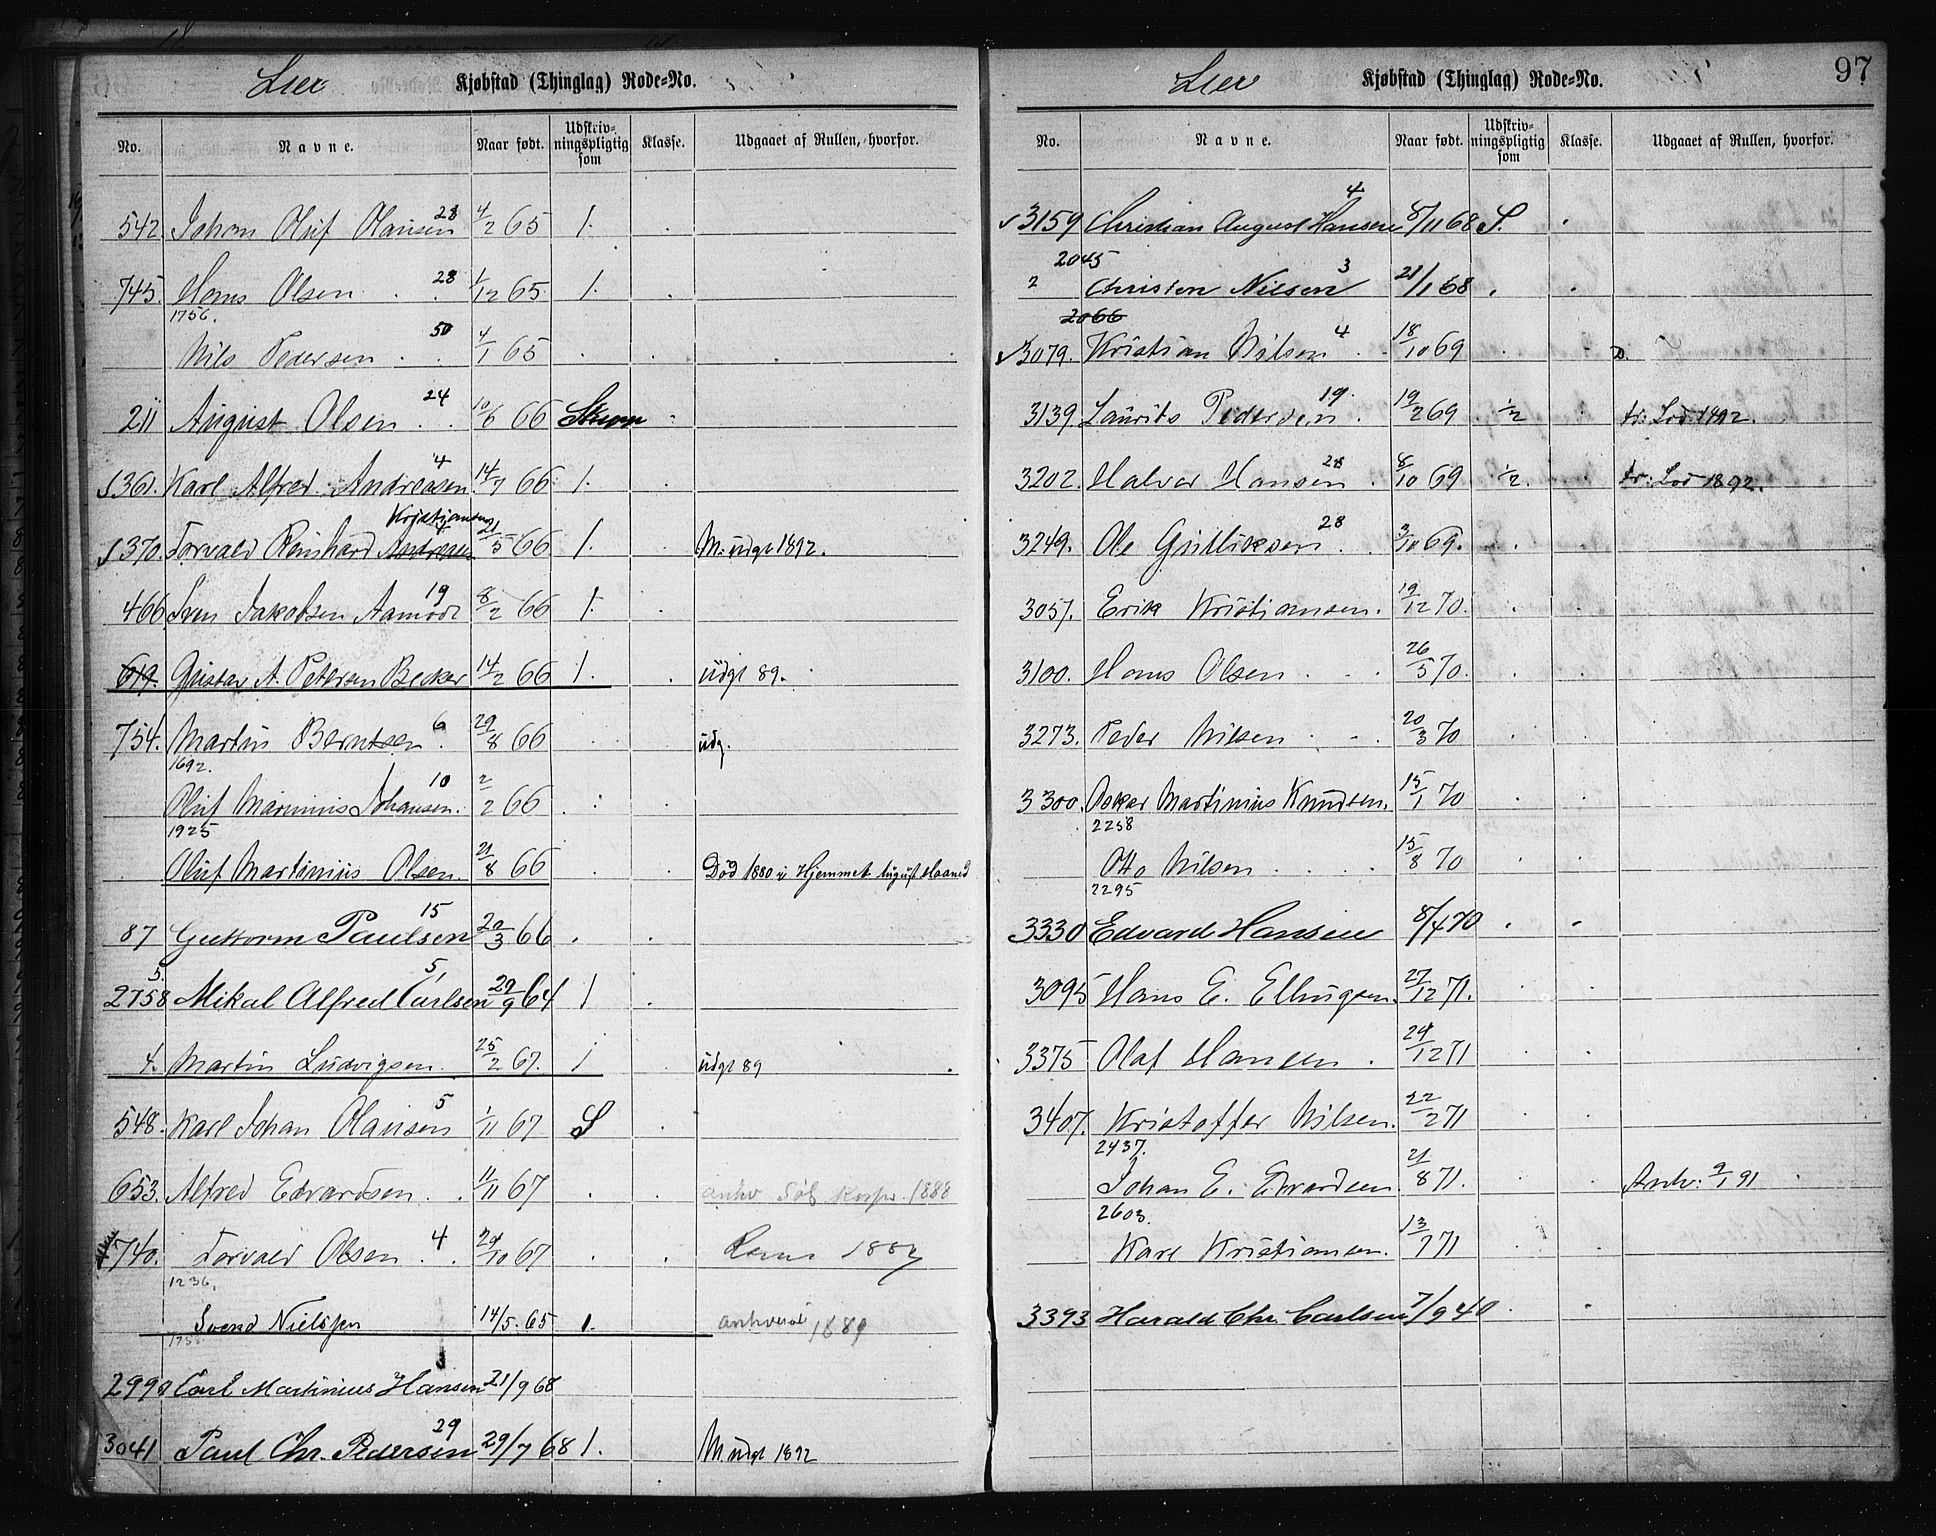 Lier Kjøbstad (Thinglag) Rode-No.
No. Navne. Naar født. Udskriv-ningspligtig som Klasse. Udgaaet af Rullen, hvorfor.
28
542. Johan Oluf Olausen 4/2 65 1.
28
745. Hans Olsen 1/12 65 1.
1756.
50
Nils Pedersen 4/1 65
24
211 August Olsen 10/6 66
4
361. Karl Alfred Andreasen 14/7 66 1.
Kristiansen
4
370. Torvald Reinhard Andresen 21/5 66 1. M. udgt 1892.
19
466 Sven Jakobsen Aamodt 8/2 66 1.
619. Gustav A. Petersen Becker 14/2 66 1. udgt 89.
6
754. Martin Berntsen 29/8 66 udg.
1692.
10
Oluf Marinius Johansen. 2/2 66
1925
Oluf Martinius Olsen. 21/8 66 Død 1880 i Hjemmet August Maaned
15
87 Guttorm Paulsen 20/3 66
5. 5,
2758 Mikal Alfred Carlsen 29/9 64 1
4. Martin Ludvigsen 25/2 67. 1 udgt 89
5
548. Karl Johan Olausen 1/11 67 S
653. Alfred Edvardsen 11/11 67 anhv Søb Korps. 1888
4
740. Torvald Olsen 24/10 67
1236.
Svend Nielssen 14/5. 65 1. anhveret 1889
1756
2990 Carl Martinius Hansen 21/9 68
29
3041 Paul Chr. Pedersen 29/7 68 1. M. udgt 1892
Lier Kjøbstad (Thinglag) Rode-No. 97
No. Navne. Naar født. Udskriv-ningspligtig som Klasse. Udgaaet af Rullen, hvorfor.
4
3159 Christian August Hansen 8/11 68 S.
2045
3
2 Christen Nilsen 21/1 68
2066
4
3079. Kristian Nilsen 18/10 69
19.
3139. Laurits Pedersen 19/2 69 1/2 tr: Lod 1892.
28
3202. Halvor Hansen 8/10 69 1/2. tr: Lod 1892.
28
3249. Ole Gulliksen 3/10 69.
3057. Erik Kristiansen. 19/12 70.
3100. Hans Olsen 26/5 70.
3273. Peder Nilsen 20/3 70
3300. Oskar Martinius Knudsen. 15/1 70
2258
Otto Nilsen 15/8 70
2295
3330 Edvard Hansen 8/4 70
3095 Hans E. Ellingsen. 27/12 71.
3375 Olaf Hansen 24/12 71
3407. Kristoffer Nilsen. 22/2 71
2437.
Johan E. Evardsen 21/8 71. Anhv: 9/1 91
2603.
Karl Kristiansen. 13/7 71
3393 Harald Chr. Carlsen 7/9 40